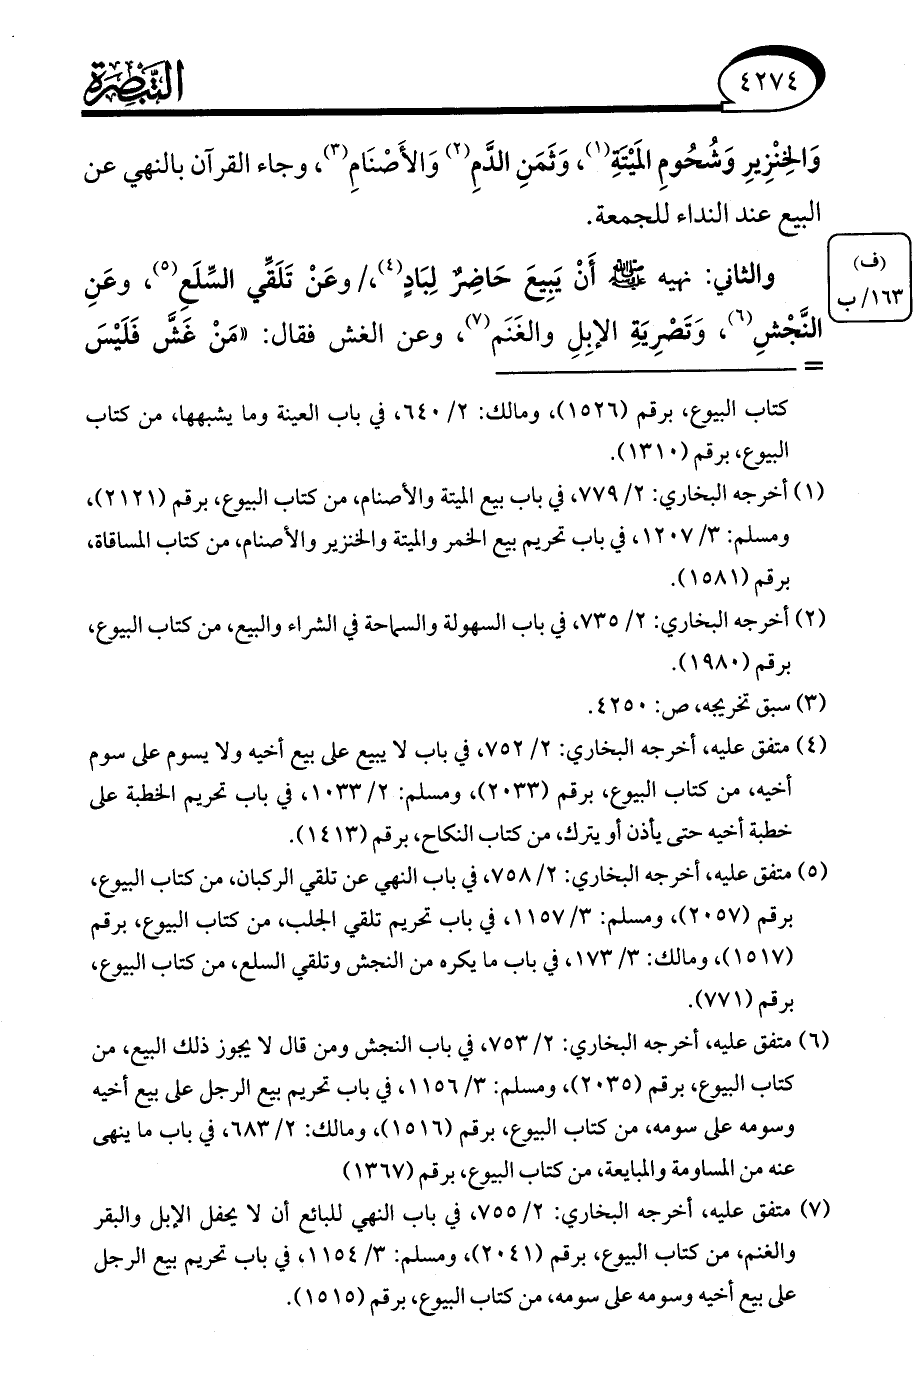 ٤٢٧٤
التبصرة
وَالخِنْزِيرِ وَشُحُومِ المَيْتَةِ(١)، وَثَمَنِ الدَّمِ(٢) وَالأَصْنَامِ(٣)، وجاء القرآن بالنهي عن
البيع عند النداء للجمعة.
والثاني: نهيه ﷺ أَنْ يَبِيعَ حَاضِرٌ لِبَادٍ(٤)،/ وعَنْ تَلَقِّي السِّلَعِ(٥)، وعَنِ
(ف)
١٦٣/ب
النَّجْشِ(٦)، وَتَصْرِيَةِ الإبِلِ والغَنَم(٧)، وعن الغش فقال: «مَنْ غَشَّ فَلَيْسَ
=
كتاب البيوع، برقم (١٥٢٦)، ومالك: ٢/ ٦٤٠، في باب العينة وما يشبهها، من كتاب
البيوع، برقم (١٣١٠).
(١) أخرجه البخاري: ٢/ ٧٧٩، في باب بيع الميتة والأصنام، من كتاب البيوع، برقم (٢١٢١)،
ومسلم: ٣/ ١٢٠٧، في باب تحريم بيع الخمر والميتة والخنزير والأصنام، من كتاب المساقاة،
برقم (١٥٨١).
(٢) أخرجه البخاري: ٢/ ٧٣٥، في باب السهولة والسماحة في الشراء والبيع، من كتاب البيوع،
برقم (١٩٨٠).
(٣) سبق تخريجه، ص: ٤٢٥٠.
(٤) متفق عليه، أخرجه البخاري: ٢/ ٧٥٢، في باب لا يبيع على بيع أخيه ولا يسوم على سوم
أخيه، من كتاب البيوع، برقم (٢٠٣٣)، ومسلم: ٢/ ١٠٣٣، في باب تحريم الخطبة على
خطبة أخيه حتى يأذن أو يترك، من كتاب النكاح، برقم (١٤١٣).
(٥) متفق عليه، أخرجه البخاري: ٢/ ٧٥٨، في باب النهي عن تلقي الركبان، من كتاب البيوع،
برقم (٢٠٥٧)، ومسلم: ٣/ ١١٥٧، في باب تحريم تلقي الجلب، من كتاب البيوع، برقم
(١٥١٧)، ومالك: ٣/ ١٧٣، في باب ما يكره من النجش وتلقي السلع، من كتاب البيوع،
برقم (٧٧١).
(٦) متفق عليه، أخرجه البخاري: ٢/ ٧٥٣، في باب النجش ومن قال لا يجوز ذلك البيع، من
كتاب البيوع، برقم (٢٠٣٥)، ومسلم: ٣/ ١١٥٦، في باب تحريم بيع الرجل على بيع أخيه
وسومه على سومه، من كتاب البيوع، برقم (١٥١٦)، ومالك: ٢/ ٦٨٣، في باب ما ينهى
عنه من المساومة والمبايعة، من كتاب البيوع، برقم (١٣٦٧)
(٧) متفق عليه، أخرجه البخاري: ٢/ ٧٥٥، في باب النهي للبائع أن لا يحفل الإبل والبقر
والغنم، من كتاب البيوع، برقم (٢٠٤١)، ومسلم: ٣/ ١١٥٤، في باب تحريم بيع الرجل
على بيع أخيه وسومه على سومه، من كتاب البيوع، برقم (١٥١٥).